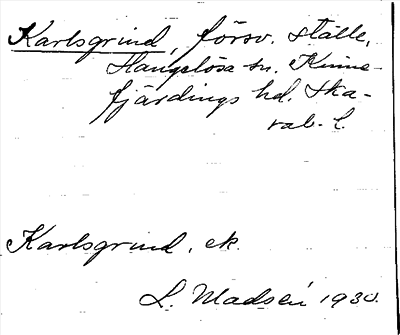 Karlsgrind, försv. ställe,
Hangelösa sn. Kinne-
fjärdings hd. Ska-
rab. l.
Karlsgrind, ek.
L. Madsén 1930.